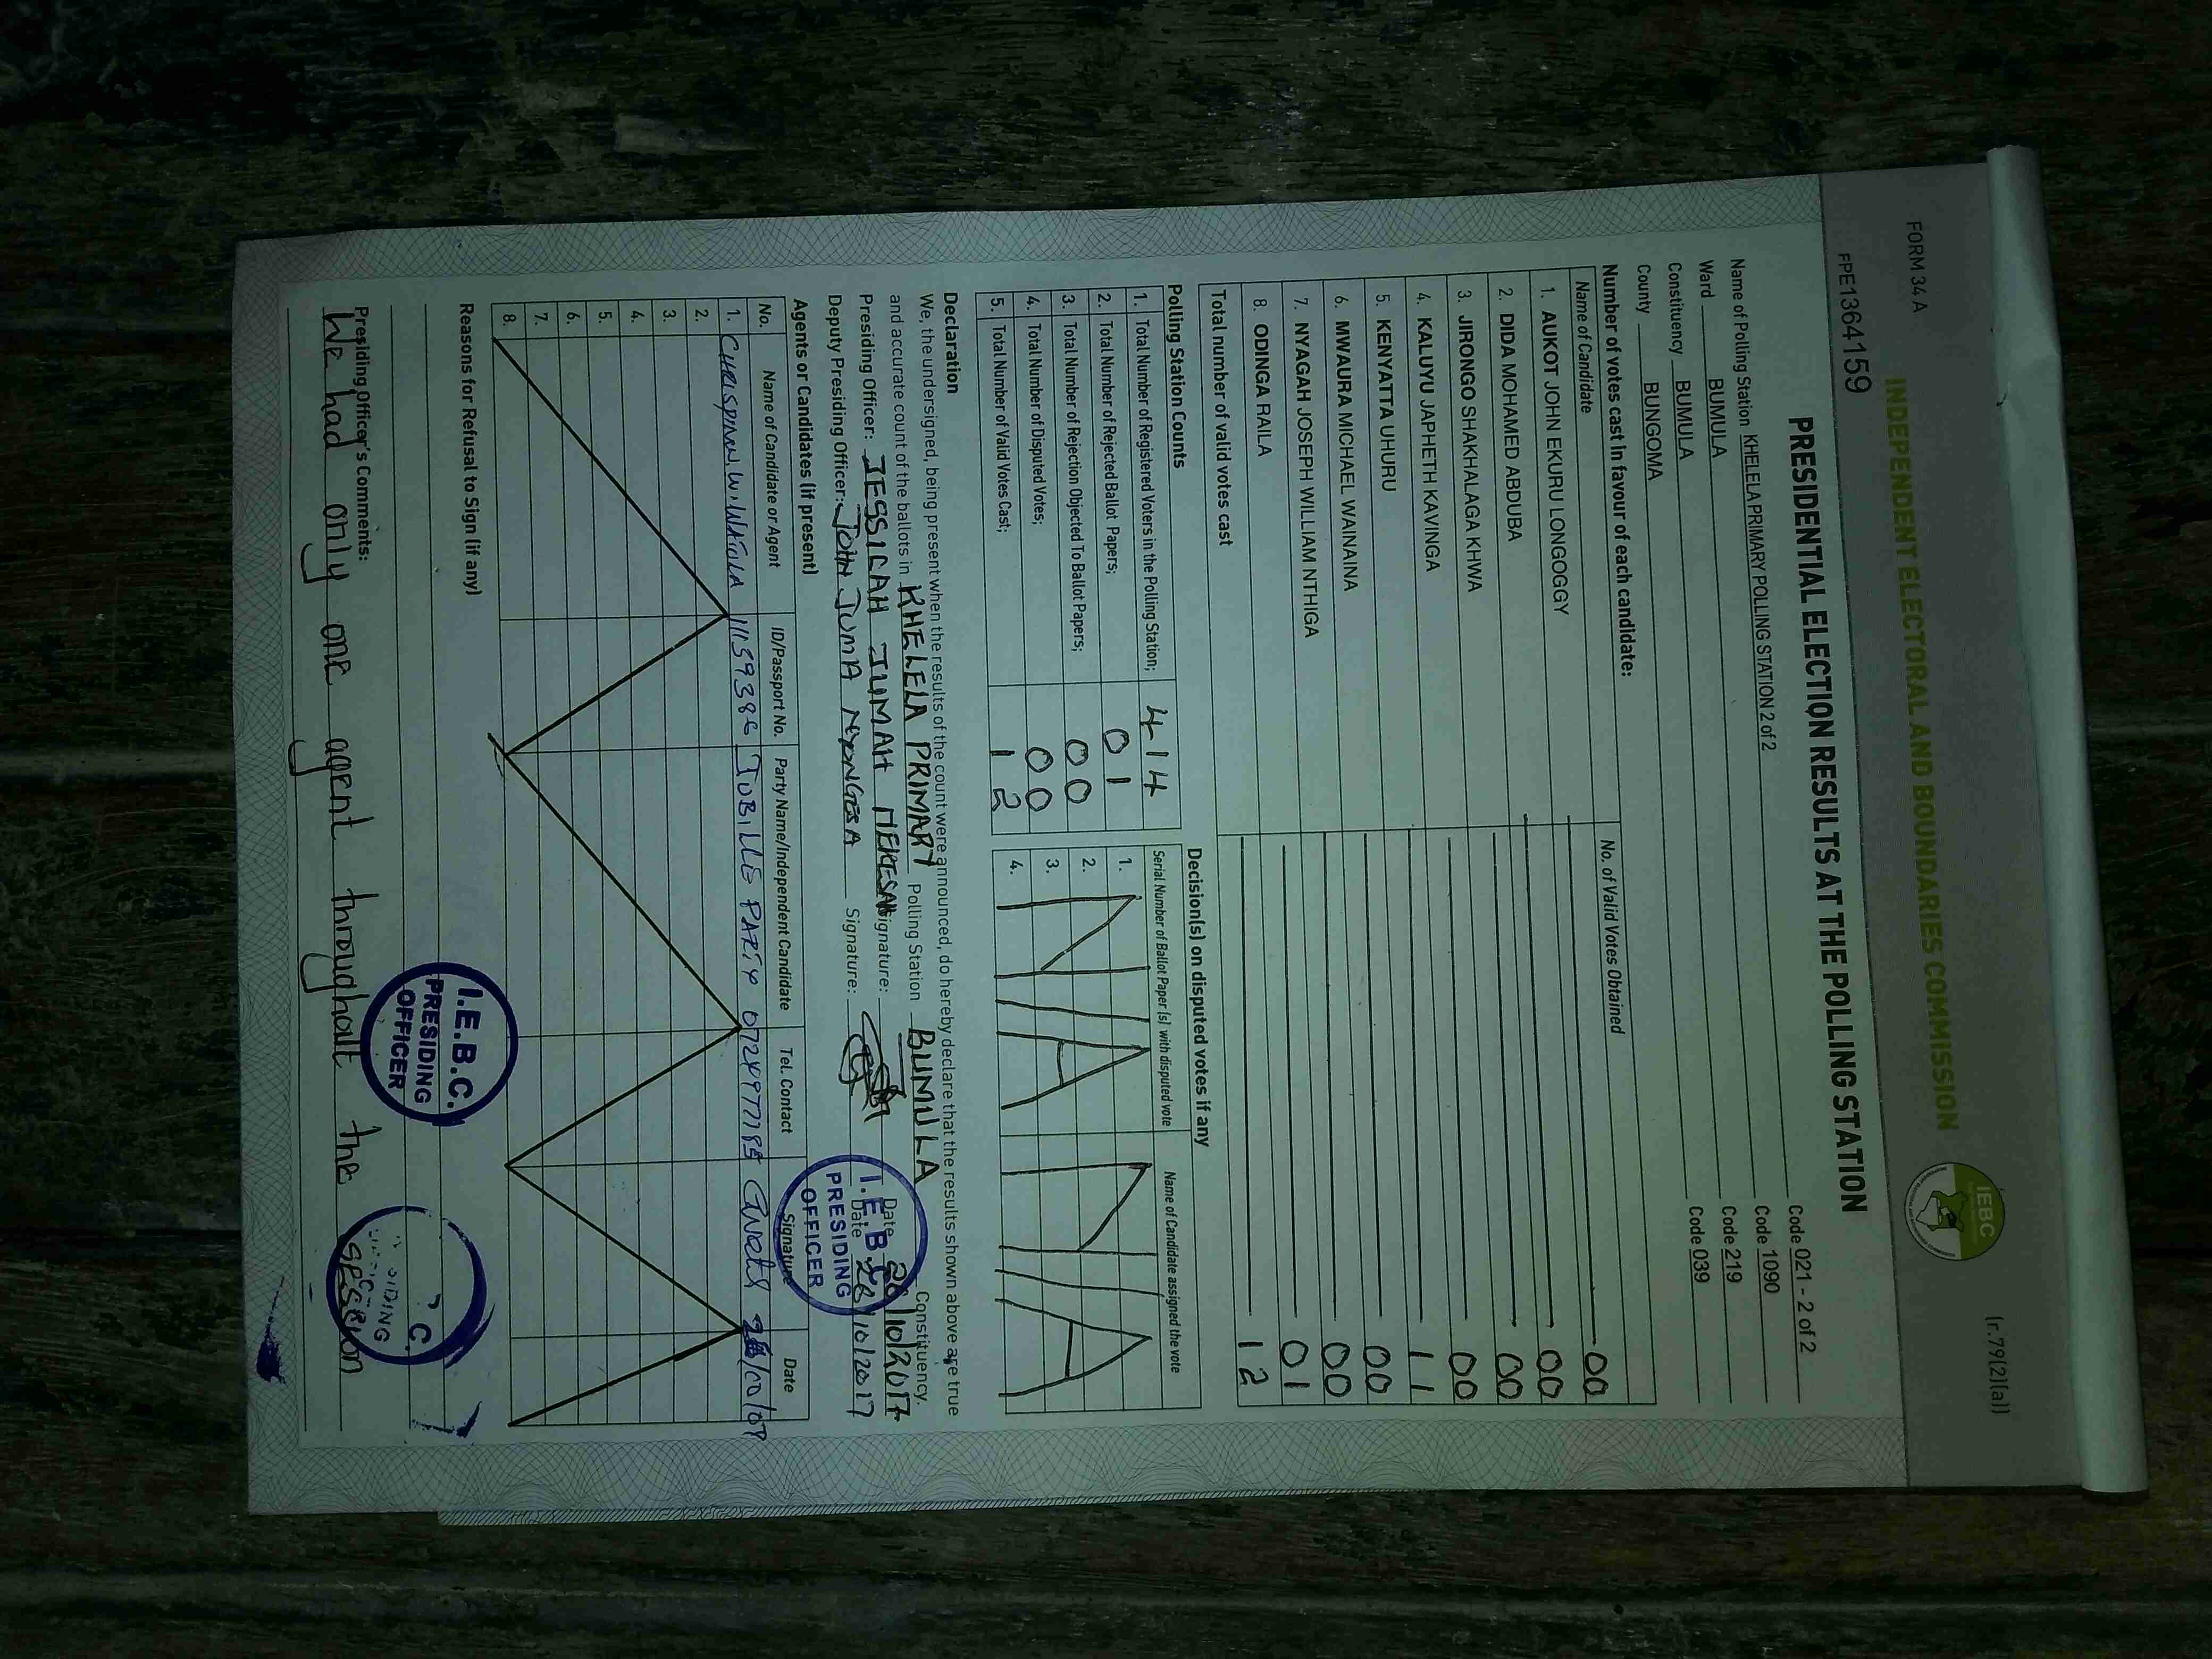 FORM 34 A
(r.79(2)(a))
INDEPENDENT ELECTORAL AND BOUNDARIES COMMISSION
IEBC
FPE1364159
PRESIDENTIAL ELECTION RESULTS AT THE POLLING STATION
Name of Polling Station KHELELA PRIMARY POLLING STATION 2 of 2 Code 021 - 2 of 2
Ward BUMULA Code 1090
Constituency BUMULA Code 219
County BUNGOMA Code 039
Number of votes cast in favour of each candidate:
Name of Candidate No. of Valid Votes Obtained
1. AUKOT JOHN EKURU LONGOGGY 00
2. DIDA MOHAMED ABDUBA 00
3. JIRONGO SHAKHALAGA KHWA 00
4. KALUYU JAPHETH KAVINGA 00
5. KENYATTA UHURU 11
6. MWAURA MICHAEL WAINAINA 00
7. NYAGAH JOSEPH WILLIAM NTHIGA 00
8. ODINGA RAILA 01
Total number of valid votes cast 12
Polling Station Counts
1. Total Number of Registered Voters in the Polling Station; 414
2. Total Number of Rejected Ballot Papers; 01
3. Total Number of Rejection Objected To Ballot Papers; 00
4. Total Number of Disputed Votes; 00
5. Total Number of Valid Votes Cast; 12
Decision(s) on disputed votes if any
Serial Number of Ballot Paper (s) with disputed vote Name of Candidate assigned the vote
1.
2.
3.
4.
N/A N/A
Declaration
We, the undersigned, being present when the results of the count were announced, do hereby declare that the results shown above are true
and accurate count of the ballots in KHELELA PRIMARY Polling Station BUMULA Constituency.
Presiding Officer: JESSICAH JUMAH Signature: Date 26/10/2017
Deputy Presiding Officer: JOHN JUMA Signature: Date 26/10/2017
I.E.B.C. PRESIDING OFFICER
Agents or Candidates (if present)
No. Name of Candidate or Agent ID/Passport No. Party Name/Independent Candidate Tel. Contact Signature Date
1. JUBILLE PARTY
2.
3.
4.
5.
6.
7.
8.
Reasons for Refusal to Sign (if any)
I.E.B.C.
PRESIDING
OFFICER
Presiding Officer's Comments:
We had only one agent throughout the session